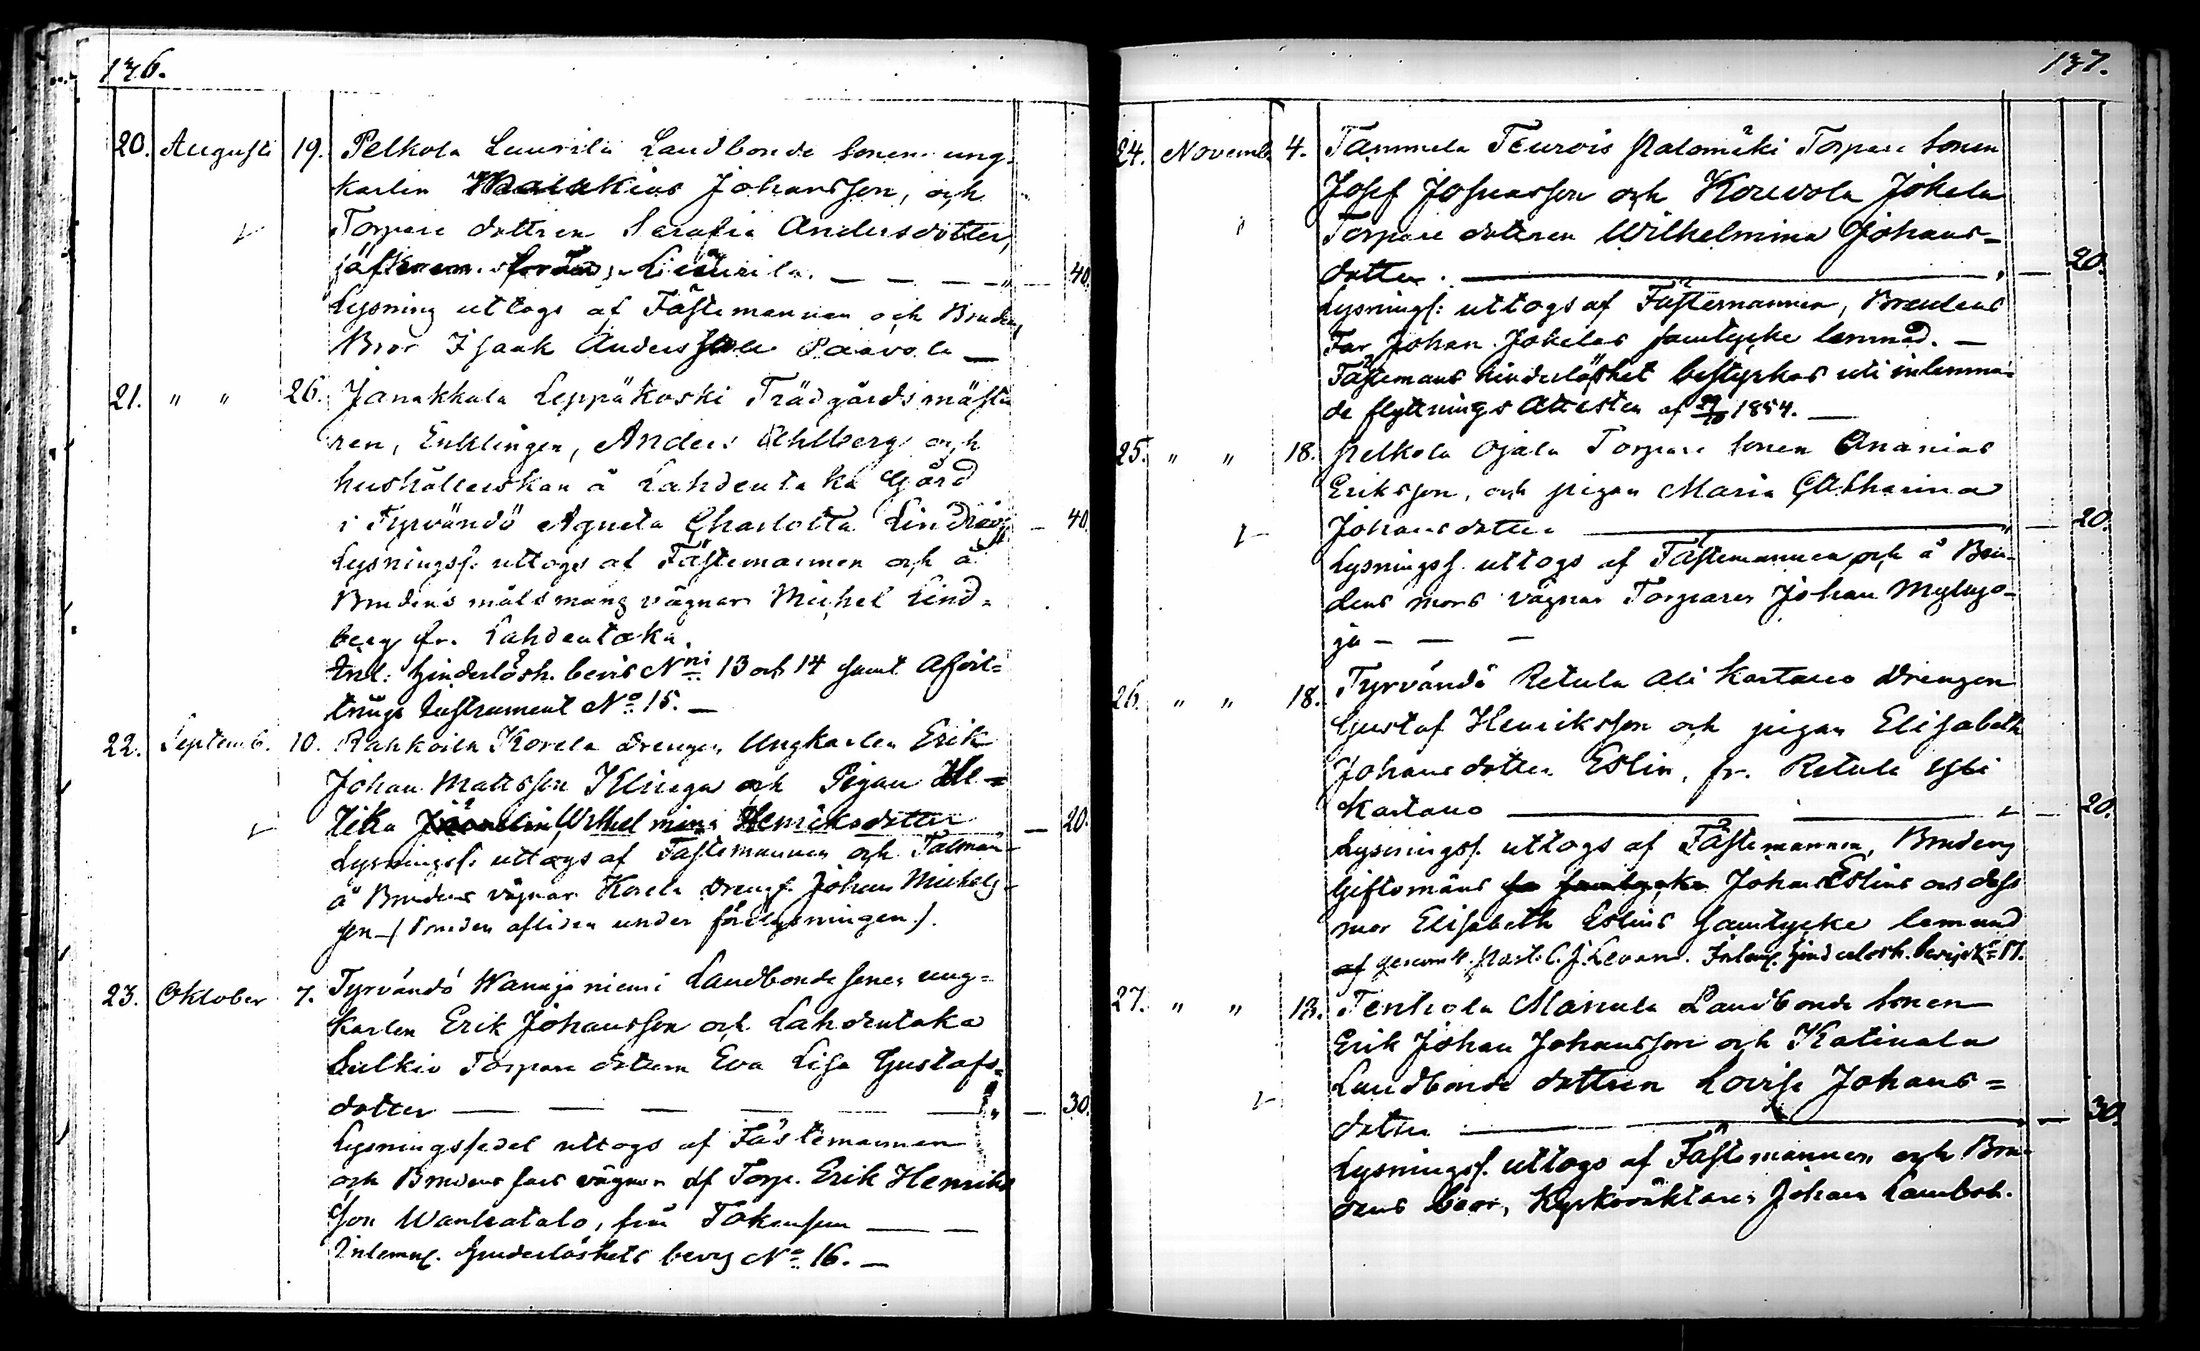 136.
20. Augusti 19. Pelkola Laurila Landbonde sonen ung-
karlen Malakias Johansson, och
Torpare dottren Serafia Andersdotter,
Laurila. — — — 40.
Lysning uttogs af Fästemannen och Brudens
Bror Isaak Andersson Paavola —
21. " " 26. Janakkala Leppäkoski Trädgårdsmästa
ren, Enklingen, Anders Ahlberg och
hushållerskan å Lahdentaka Gård
i Tyrvändö Agneta Charlotta Lindqvist — 40.
Lysningss. uttogs af Fästemannen och å
Brudens målsmans vägnar Michel Lind-
berg fr. Lahdentaka.
Inl: hinderlösh. bevis Nri 13 och 14 samt Afvit-
trings Instrument No 15. —
22. Septemb. 10. Rahkoila Korela drengen Ungkarlen Erik
Johan Mattsson Klinga och Pigan He-
Wilhelmina Henriksdotter — 20.
Lysningss. uttogs af Fästemannen och Talman
å Brudens vägnar Korela Drengs. Johan Michels-
son —/ Bruden afliden under förelysningen /.
23. Oktober 7. Tyrvändö Wanajaniemi Landbonde sonen ung-
karlen Erik Johansson och Lahdentaka
Sulkio Torpare dottren Eva Lisa Gustafs-
dotter — — — — — " — 30.
Lysningssedel uttogs af Fästemannen
och Brudens fars vägnar af Torp. Erik Henriks
son Wanhatalo, från
Inlemn. Hinderlöshets bevis No 16. —
137.
24. Novemb. 4. Tammela Teurois Palomäki Torpare Sonen
Josef Josuasson och Kouvola Jokela
Torpare dottren Wilhelmina Johans-
dotter. — — 20.
Lysningss: uttogs af Fästemannen, Brudens
Far Johan Jokelas samtycke lemnad. —
Fästemans hinderlöshet bestyrkes uti inlemna-
de flyttnings Attesten af 1854. —
25. " " 18. Pelkola Ojala Torpare Sonen Ananias
Eriksson, och pigan Maria Catharina
Johansdotter — — 20.
Lysningss. uttogs af Fästemannen och å Bru-
dens mors vägnar Torparen Johan Myllyo-
ja — — —
26. " " 18. Tyrvändö Retula Ali Kartano drengen
Gustaf Henriksson och pigan Elisabeth
Johansdotter Eslin, fr. Retula Ylli
Kartano — — — 20.
Lysningss. uttogs af Fästemannen, Brudens
Giftomans Johan Eslins och dess
mor Elisabeth Eslins samtycke lemnad
genom Past. C. J. Levan. Inlemn. hinderlösh. bevis No 17.
27. " " 13. Tenhola Manula Landbonde Sonen
Erik Johan Johansson och Katinala
Landbonde dottren Lovisa Johans=
dotter — — 30.
Lysningss. uttogs af Fästemannen och Bru-
dens bror, Kyrkväktaren Johan Lamboh.